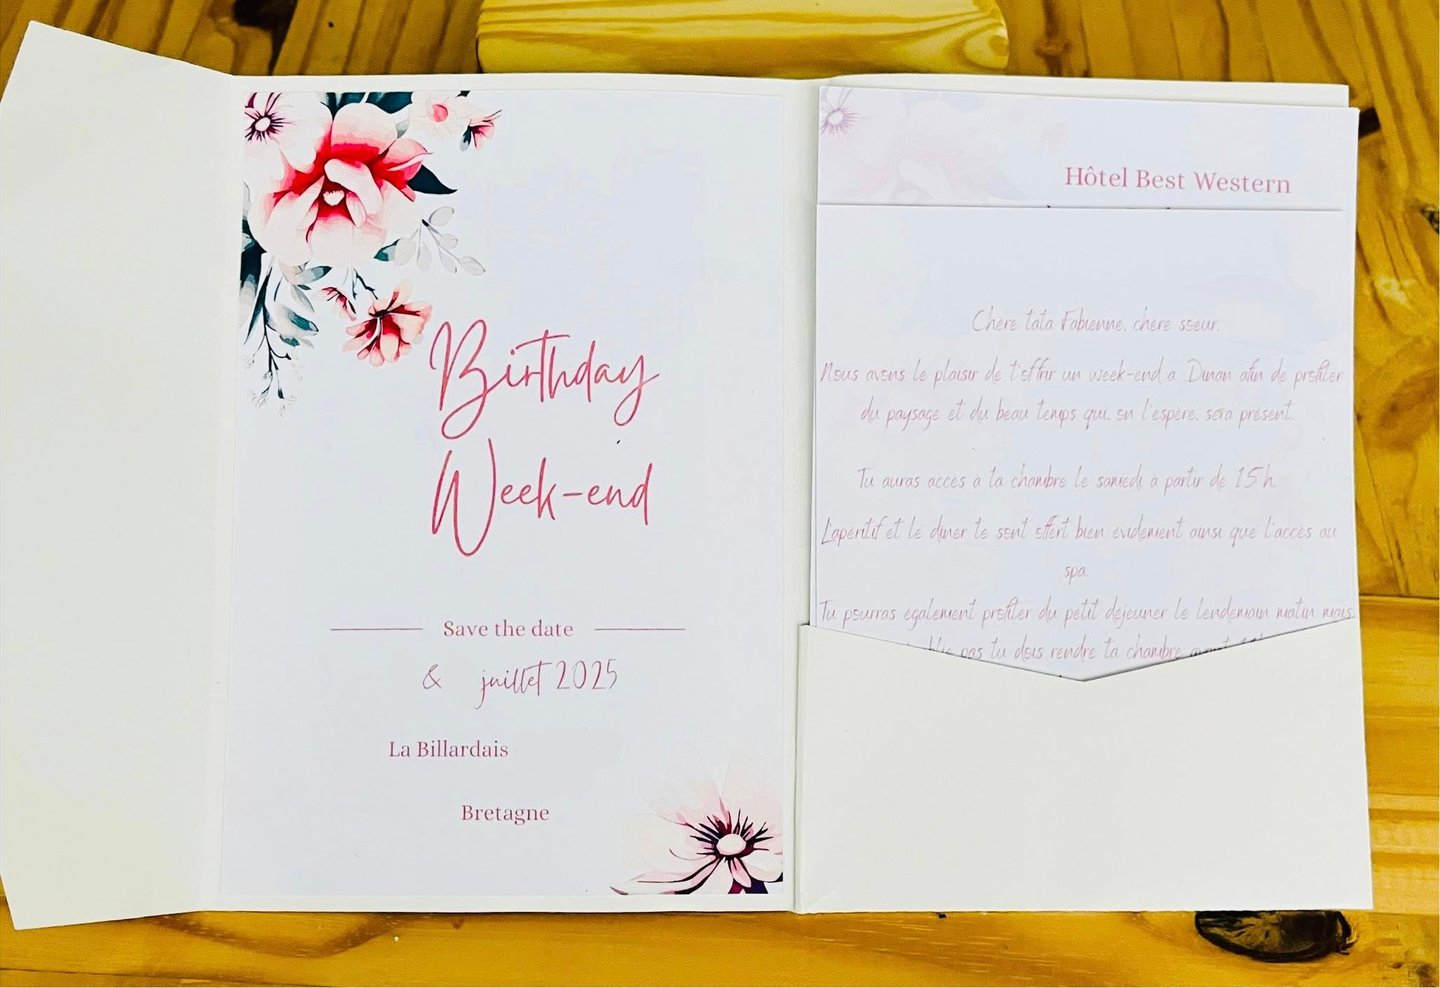 Birthday
Week-end
Save the date
& juillet 2025
La Billardais
Bretagne
Hôtel Best Western
Chère tata Fabienne, chère soeur,
Nous avons le plaisir de t'offrir un week-end a Dinan afin de profiter
du paysage et du beau temps qui, on l'espère, sera présent.
Tu auras accès à ta chambre le samedi à partir de 15 h.
L'apéritif et le dîner te sont offert bien évidement ainsi que l'accès au
spa.
Tu pourras également profiter du petit déjeuner le lendemain matin mais
pas tu dois rendre ta chambre avant